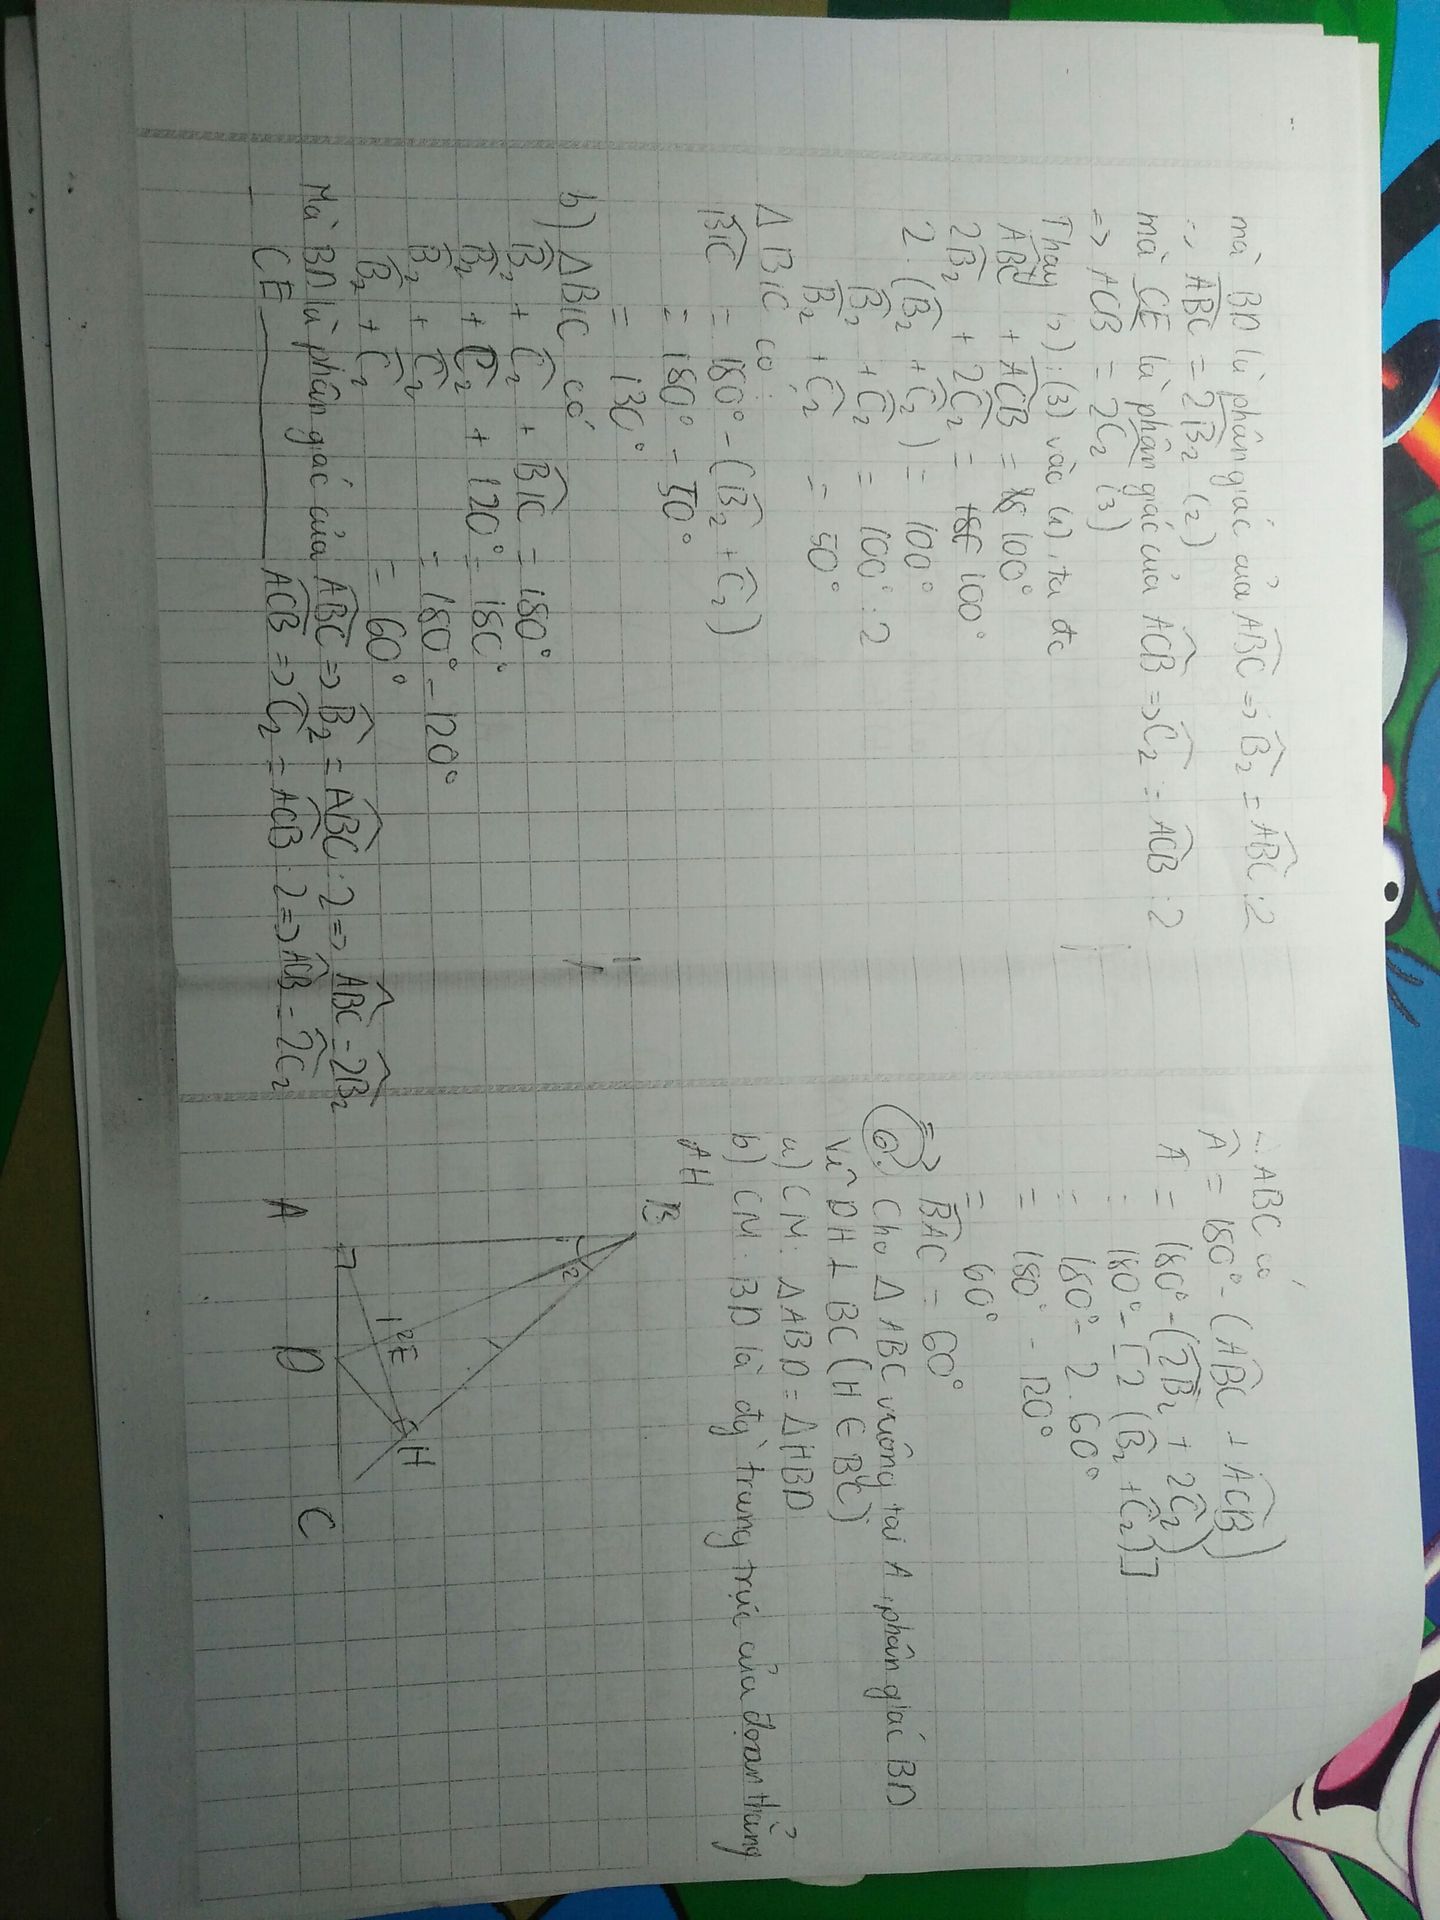 mà BD là phân giác của ABC => B₂ = ABC : 2
=> ABC = 2B₂ (2)
mà CE là phân giác của ACB => C₂ = ACB : 2
=> ACB = 2C₂ (3)
Thay (2); (3) vào (1), ta đc
ABC + ACB = 100°
2B₂ + 2C₂ = 100°
2. (B₂ + C₂) = 100°
B₂ + C₂ = 100° : 2
B₂ + C₂ = 50°
Δ BIC có:
BIC = 180° - (B₂ + C₂)
= 180° - 50°
= 130°
b) Δ BIC có
B₂ + C₂ + BIC = 180°
B₂ + C₂ + 120° = 180°
B₂ + C₂ = 180° - 120°
B₂ + C₂ = 60°
Mà BD là phân giác của ABC => B₂ = ABC : 2 => ABC = 2B₂
CE ACB => C₂ = ACB : 2 => ACB = 2C₂
ABC có
A = 180° - (ABC + ACB)
A = 180° - (2B₂ + 2C₂)
= 180° - [2 (B₂ + C₂)]
= 180° - 2. 60°
= 180° - 120°
= 60°
=> BAC = 60°
6. Cho Δ ABC vuông tại A, phân giác BD
Vẽ DH ⊥ BC (H ∈ BC)
a) CM: Δ ABD = Δ HBD
b) CM: BD là đg trung trực của đoạn thẳng
AH
B
1 2
1 2 E
H
A D C